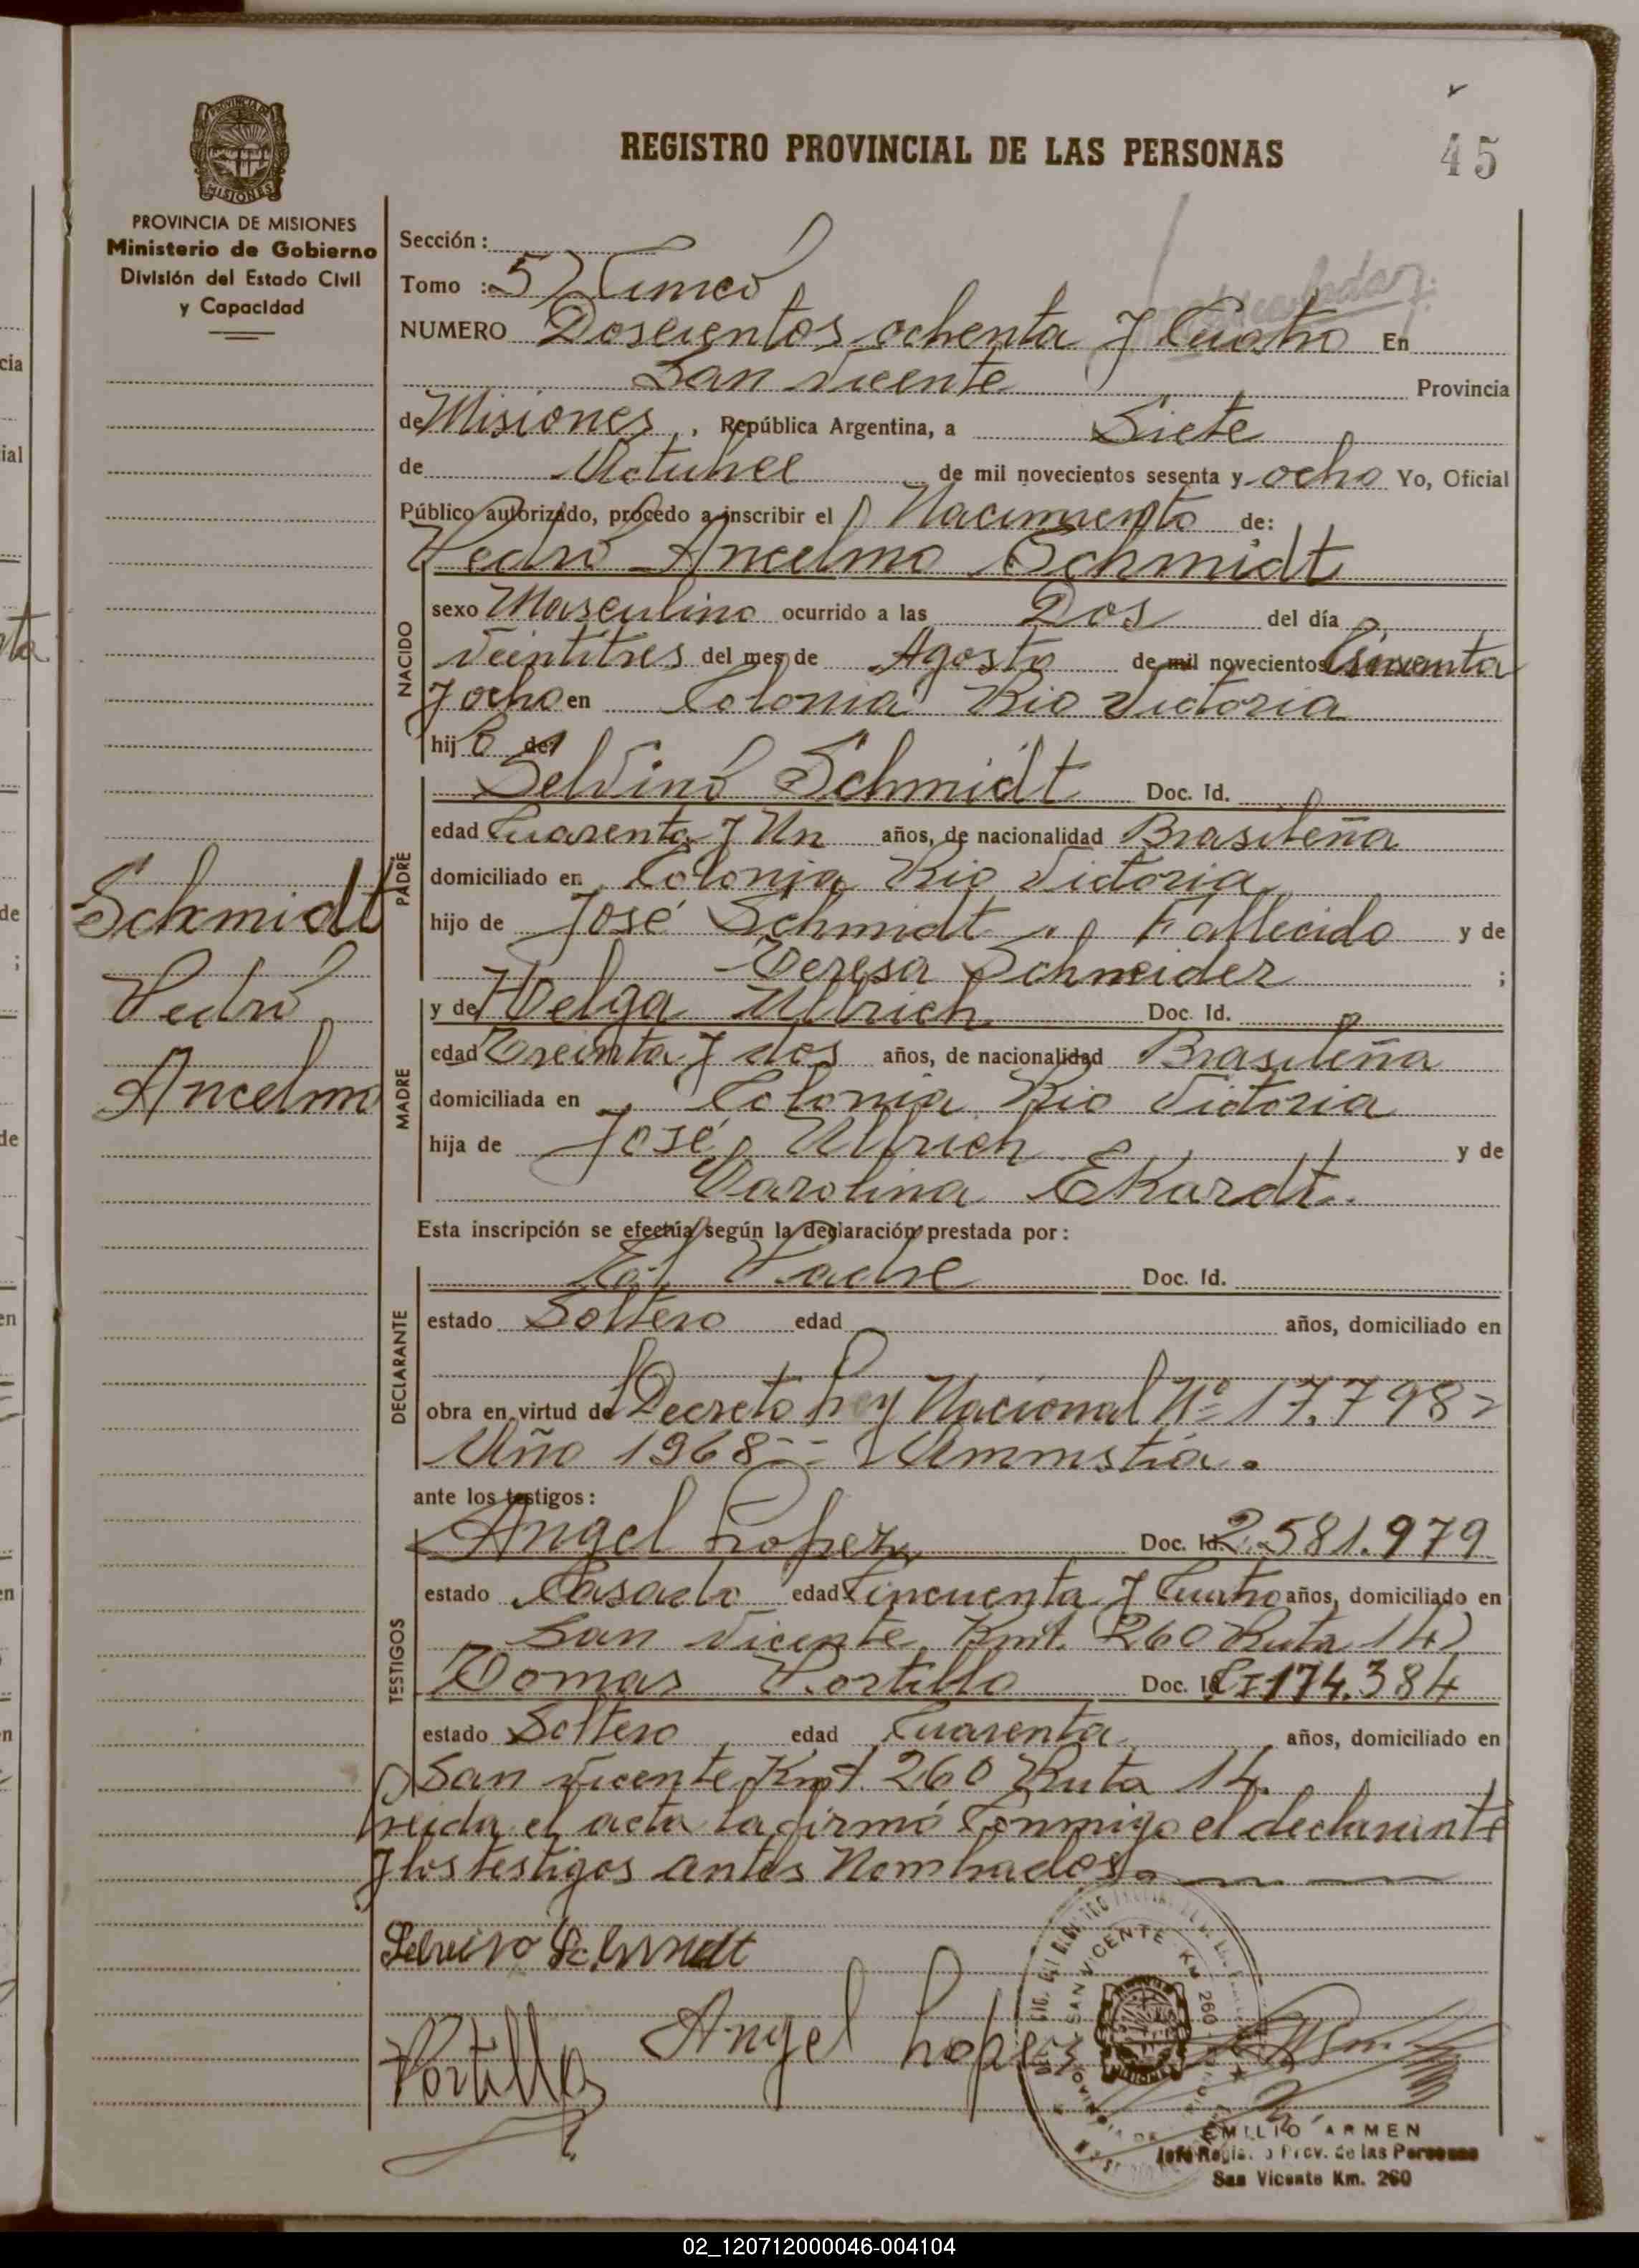 REGISTRO PROVINCIAL DE LAS PERSONAS
45
PROVINCIA DE MISIONES
Ministerio de Gobierno
División del Estado Civil
y Capacidad
Sección :
Tomo : 5) Cinco
NUMERO Doscientos ochenta y Cuatro En
San Vicente Provincia
de Misiones, República Argentina, a Siete
de Octubre de mil novecientos sesenta y ocho Yo, Oficial
Público autorizado, procedo a inscribir el Nacimiento de:
Pedro Ancelmo Schmidt
NACIDO
sexo Masculino ocurrido a las Dos del día
Veintitres del mes de Agosto de mil novecientos Cincuenta
y ocho en Colonia Rio Victoria
hijo de
PADRE
Selvino Schmidt Doc. Id.
edad Cuarenta y Un años, de nacionalidad Brasileña
domiciliado en Colonia Rio Victoria
hijo de José Schmidt Fallecido y de
Teresa Schneider ;
MADRE
y de Helga Ullrich Doc. Id.
edad Treinta y dos años, de nacionalidad Brasileña
domiciliada en Colonia Rio Victoria
hija de José Ullrich y de
Carolina Ekardt.
Schmidt
Pedro
Ancelmo
Esta inscripción se efectúa según la declaración prestada por :
DECLARANTE
El Padre Doc. Id.
estado Soltero edad años, domiciliado en
obra en virtud de Decreto Ley Nacional Nº 17.798
Año 1968 Amnistia.
ante los testigos :
TESTIGOS
Angel Lopez Doc. Id. 2.581.979
estado Casado edad Cincuenta y Cuatro años, domiciliado en
San Vicente Kmt. 260 Ruta 14)
Tomas Portillo Doc. Id. CI 174.384
estado Soltero edad Cuarenta años, domiciliado en
San Vicente Kmt. 260 Ruta 14.
Leida el acta la firmó Conmigo el declarante
y los testigos antes Nombrados.
Selvino Schmidt
Portillo Angel Lopez
SAN VICENTE KM 260
MISIONES
EMILIO ARMEN
Jefe Registro Prov. de las Personas
San Vicente Km. 260
02_120712000046-004104